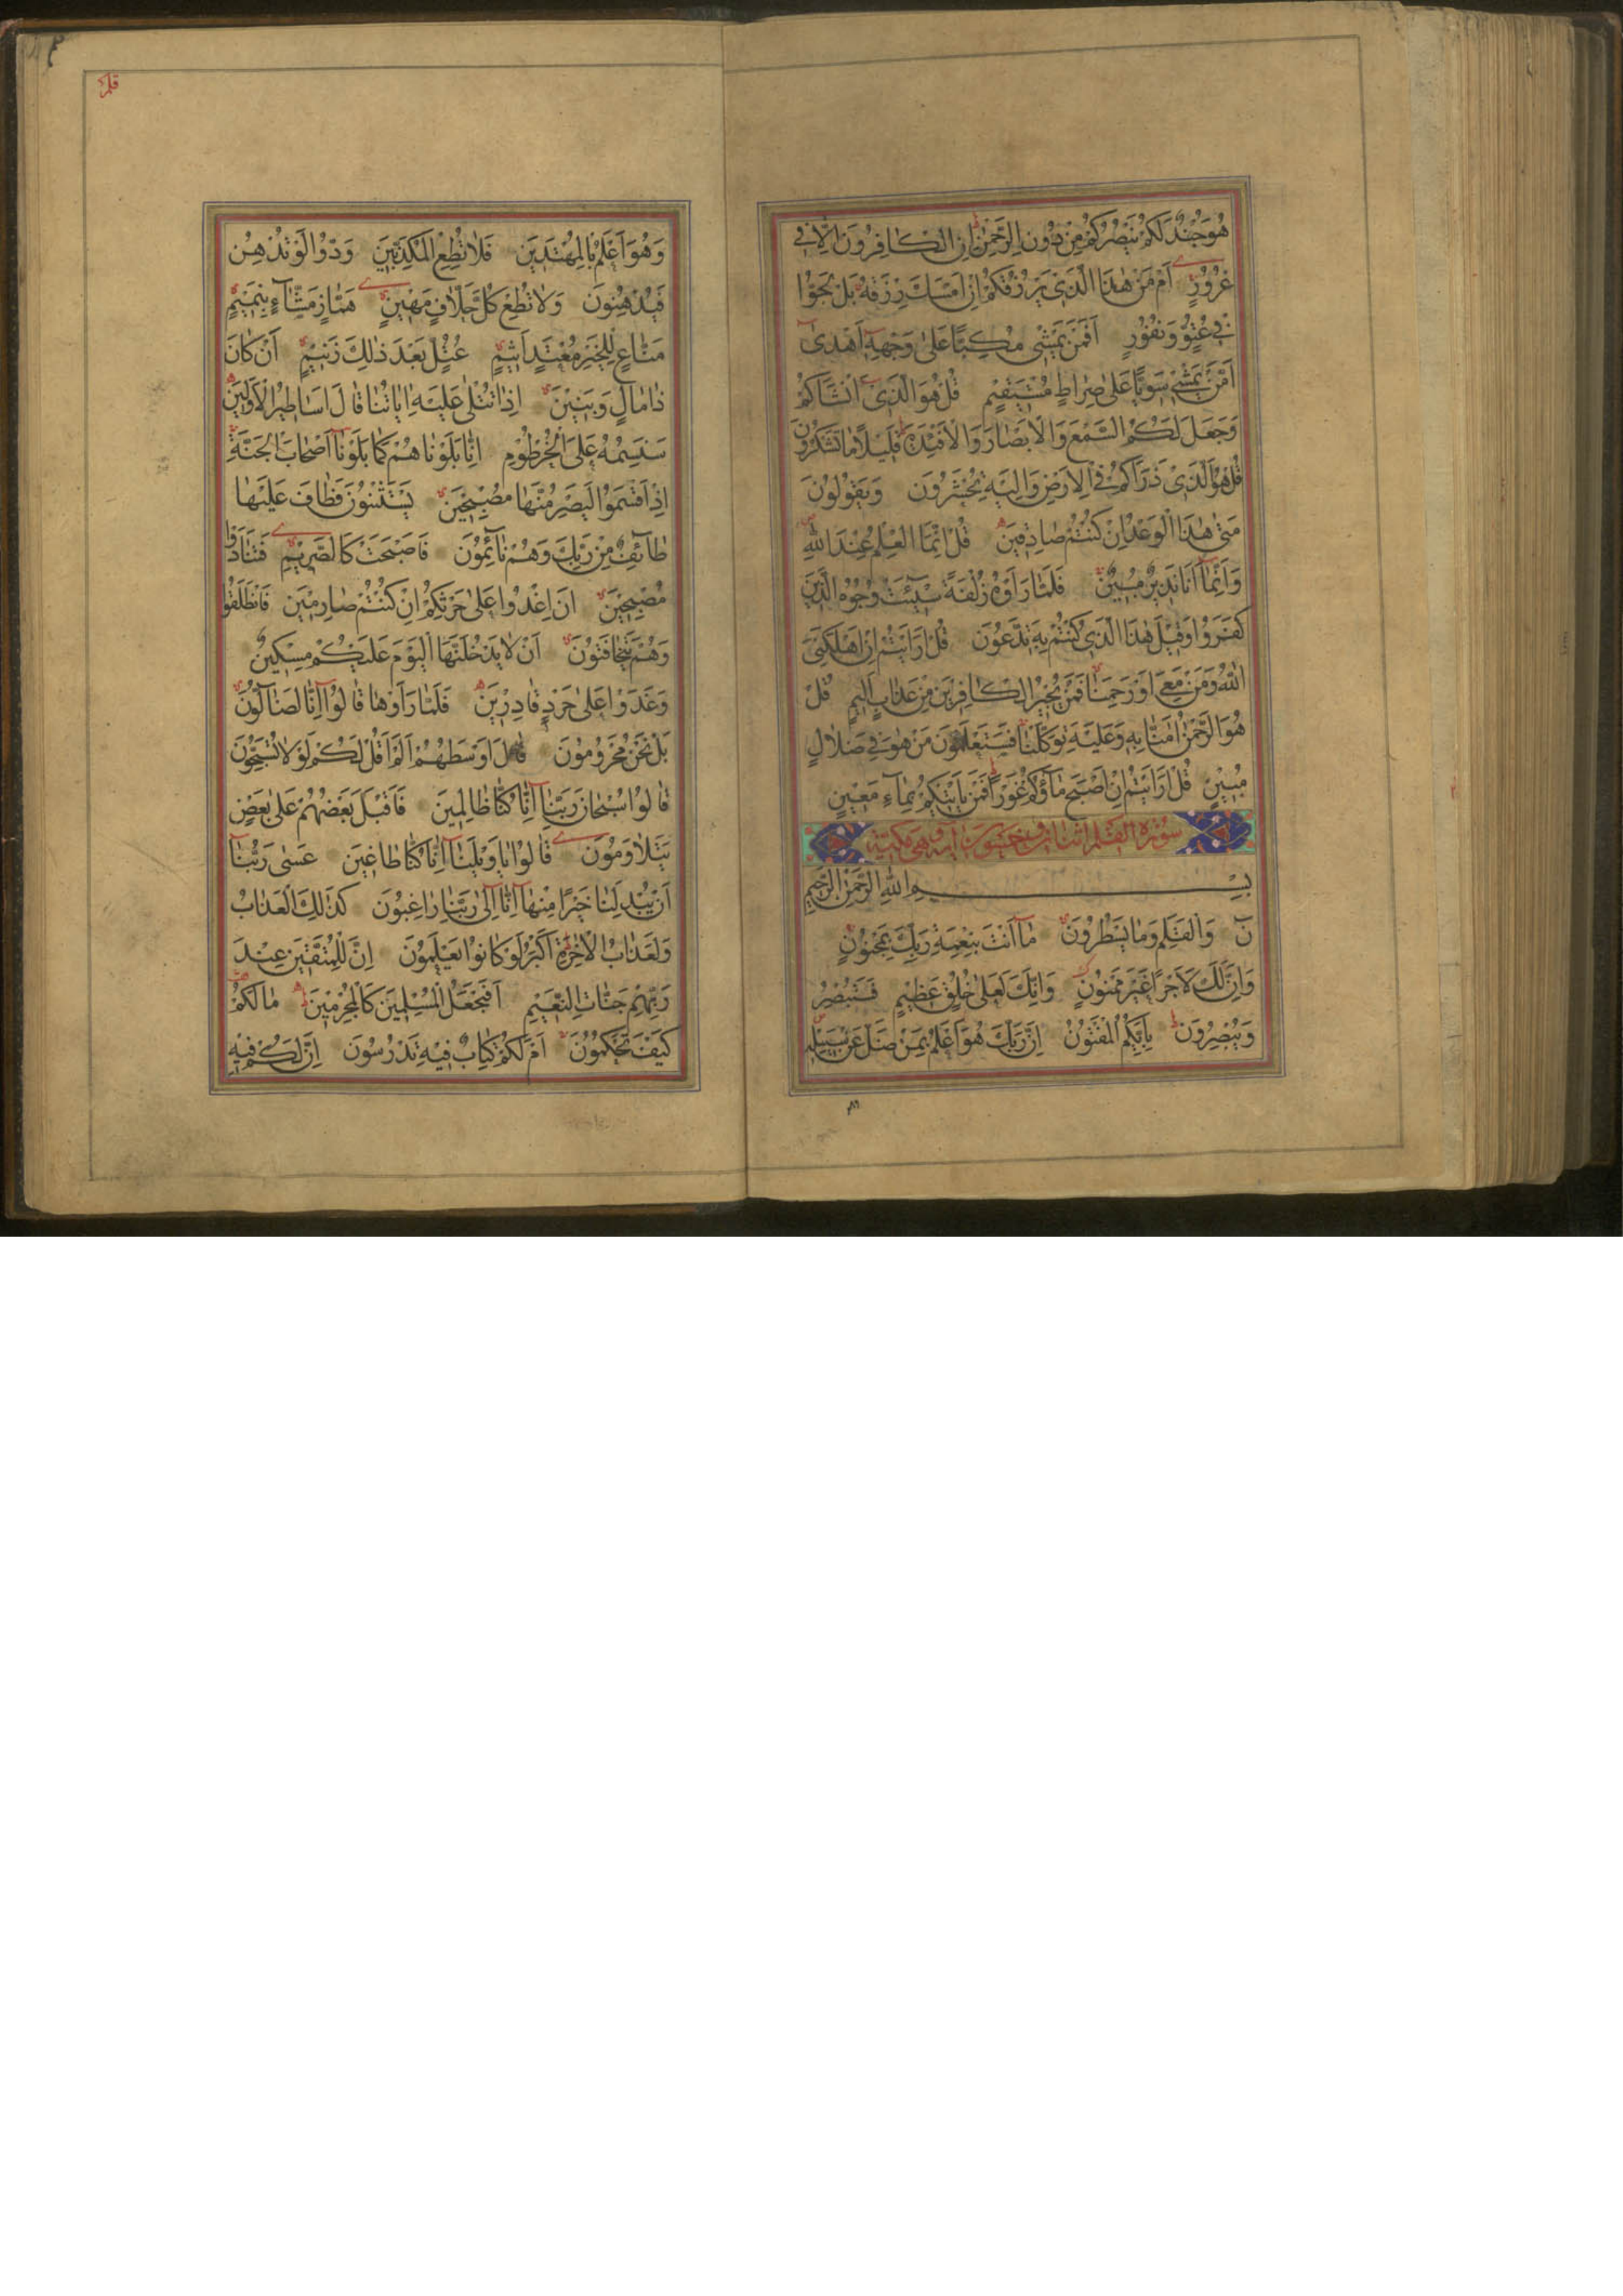 هُوَ جُنْدٌ لَكُمْ يَنْصُرُكُمْ مِنْ دُونِ الرَّحْمٰنِ اِنِ الْكَافِرُونَ اِلَّا فِي
غُرُورٍ اَمْ مَنْ هٰذَا الَّذِي يَرْزُقُكُمْ اِنْ اَمْسَكَ رِزْقَهُ بَلْ لَجُّوا
فِي عُتُوٍّ وَنُفُورٍ اَفَمَنْ يَمْشِي مُكِبًّا عَلٰى وَجْهِهِ اَهْدٰى
اَمَّنْ يَمْشِي سَوِيًّا عَلٰى صِرَاطٍ مُسْتَقِيمٍ قُلْ هُوَ الَّذِي اَنْشَاَكُمْ
وَجَعَلَ لَكُمُ السَّمْعَ وَالْاَبْصَارَ وَالْاَفْئِدَةَ قَلِيلًا مَا تَشْكُرُونَ
قُلْ هُوَ الَّذِي ذَرَاَكُمْ فِي الْاَرْضِ وَاِلَيْهِ تُحْشَرُونَ وَيَقُولُونَ
مَتٰى هٰذَا الْوَعْدُ اِنْ كُنْتُمْ صَادِقِينَ قُلْ اِنَّمَا الْعِلْمُ عِنْدَ اللّٰهِ
وَاِنَّمَا اَنَا نَذِيرٌ مُبِينٌ فَلَمَّا رَاَوْهُ زُلْفَةً سِيئَتْ وُجُوهُ الَّذِينَ
كَفَرُوا وَقِيلَ هٰذَا الَّذِي كُنْتُمْ بِهِ تَدَّعُونَ قُلْ اَرَاَيْتُمْ اِنْ اَهْلَكَنِيَ
اللّٰهُ وَمَنْ مَعِيَ اَوْ رَحِمَنَا فَمَنْ يُجِيرُ الْكَافِرِينَ مِنْ عَذَابٍ اَلِيمٍ قُلْ
هُوَ الرَّحْمٰنُ اٰمَنَّا بِهِ وَعَلَيْهِ تَوَكَّلْنَا فَسَتَعْلَمُونَ مَنْ هُوَ فِي ضَلَالٍ
مُبِينٍ قُلْ اَرَاَيْتُمْ اِنْ اَصْبَحَ مَاؤُكُمْ غَوْرًا فَمَنْ يَاْتِيكُمْ بِمَاءٍ مَعِينٍ
سورة القلم اثنان و خمسون آية وهي مكية
بِسْمِ اللّٰهِ الرَّحْمٰنِ الرَّحِيمِ
نٓ وَالْقَلَمِ وَمَا يَسْطُرُونَ مَا اَنْتَ بِنِعْمَةِ رَبِّكَ بِمَجْنُونٍ
وَاِنَّ لَكَ لَاَجْرًا غَيْرَ مَمْنُونٍ وَاِنَّكَ لَعَلٰى خُلُقٍ عَظِيمٍ فَسَتُبْصِرُ
وَيُبْصِرُونَ بِاَيِّكُمُ الْمَفْتُونُ اِنَّ رَبَّكَ هُوَ اَعْلَمُ بِمَنْ ضَلَّ عَنْ سَبِيلِهِ
قلم
وَهُوَ اَعْلَمُ بِالْمُهْتَدِينَ فَلَا تُطِعِ الْمُكَذِّبِينَ وَدُّوا لَوْ تُدْهِنُ
فَيُدْهِنُونَ وَلَا تُطِعْ كُلَّ حَلَّافٍ مَهِينٍ هَمَّازٍ مَشَّاءٍ بِنَمِيمٍ
مَنَّاعٍ لِلْخَيْرِ مُعْتَدٍ اَثِيمٍ عُتُلٍّ بَعْدَ ذٰلِكَ زَنِيمٍ اَنْ كَانَ
ذَا مَالٍ وَبَنِينَ اِذَا تُتْلٰى عَلَيْهِ اٰيَاتُنَا قَالَ اَسَاطِيرُ الْاَوَّلِينَ
سَنَسِمُهُ عَلَى الْخُرْطُومِ اِنَّا بَلَوْنَاهُمْ كَمَا بَلَوْنَا اَصْحَابَ الْجَنَّةِ
اِذْ اَقْسَمُوا لَيَصْرِمُنَّهَا مُصْبِحِينَ يَسْتَثْنُونَ فَطَافَ عَلَيْهَا
طَائِفٌ مِنْ رَبِّكَ وَهُمْ نَائِمُونَ فَاَصْبَحَتْ كَالصَّرِيمِ فَتَنَادَوْا
مُصْبِحِينَ اَنِ اغْدُوا عَلٰى حَرْثِكُمْ اِنْ كُنْتُمْ صَارِمِينَ فَانْطَلَقُوا
وَهُمْ يَتَخَافَتُونَ اَنْ لَا يَدْخُلَنَّهَا الْيَوْمَ عَلَيْكُمْ مِسْكِينٌ
وَغَدَوْا عَلٰى حَرْدٍ قَادِرِينَ فَلَمَّا رَاَوْهَا قَالُوا اِنَّا لَضَالُّونَ
بَلْ نَحْنُ مَحْرُومُونَ قَالَ اَوْسَطُهُمْ اَلَمْ اَقُلْ لَكُمْ لَوْلَا تُسَبِّحُونَ
قَالُوا سُبْحَانَ رَبِّنَا اِنَّا كُنَّا ظَالِمِينَ فَاَقْبَلَ بَعْضُهُمْ عَلٰى بَعْضٍ
يَتَلَاوَمُونَ قَالُوا يَا وَيْلَنَا اِنَّا كُنَّا طَاغِينَ عَسٰى رَبُّنَا
اَنْ يُبْدِلَنَا خَيْرًا مِنْهَا اِنَّا اِلٰى رَبِّنَا رَاغِبُونَ كَذٰلِكَ الْعَذَابُ
وَلَعَذَابُ الْاٰخِرَةِ اَكْبَرُ لَوْ كَانُوا يَعْلَمُونَ اِنَّ لِلْمُتَّقِينَ عِنْدَ
رَبِّهِمْ جَنَّاتِ النَّعِيمِ اَفَنَجْعَلُ الْمُسْلِمِينَ كَالْمُجْرِمِينَ مَا لَكُمْ
كَيْفَ تَحْكُمُونَ اَمْ لَكُمْ كِتَابٌ فِيهِ تَدْرُسُونَ اِنَّ لَكُمْ فِيهِ